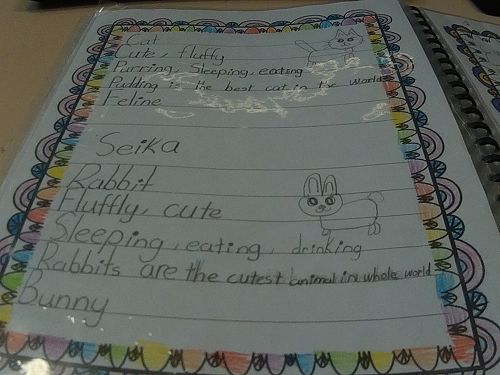 Cat
Cute, fluffy
Purring, Sleeping, eating
Pudding is the best cat in the world
Feline
Seika
Rabbit
Fluffly, cute
Sleeping, eating, drinking
Rabbits are the cutest animal in whole world
Bunny